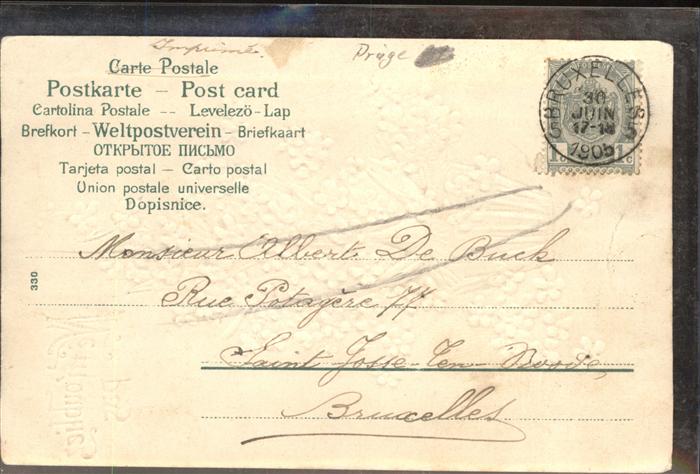 Imprimé.
Prúge
Carte Postale
Postkarte – Post card
Cartolina Postale -- Levelezö-Lap
Brefkort - Weltpostverein - Briefkaart
ОТКРЫТОЕ ПИСЬМО
Tarjeta postal – Carto postal
Union postale universelle
Dopisnice.
BRUXELLES 5
30
JUIN
17-18
1905
5
1c 1c
Monsieur Albert De Buck
Rue Potagère 77
Saint Josse-Ten-Noode,
Bruxelles
330